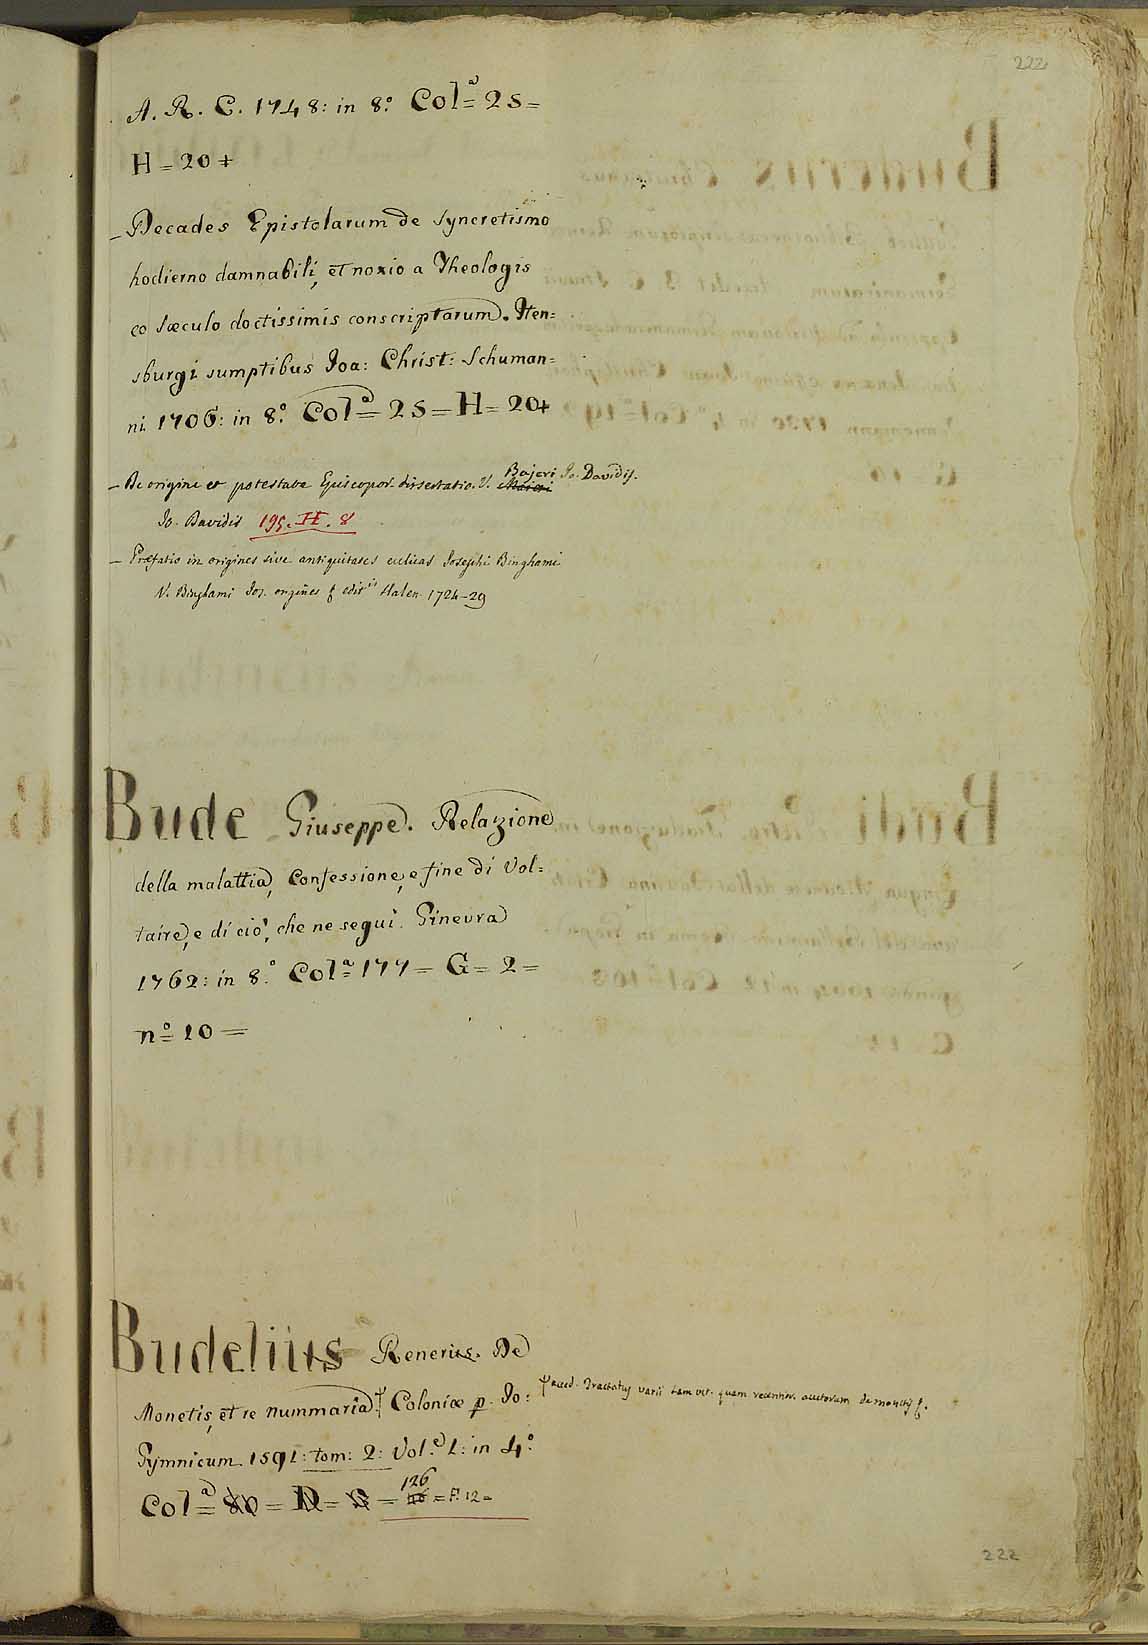 222
A. R. C. 1748: in 8.º Colª= 2S=
H = 20+
_ Decades Epistolarum de Syncretismo
hodierno damnabili, et noxio a Theologis
eo sæculo doctissimis conscriptarum. Iten=
sburgi sumptibus Joa: Christ: Schuman=
ni 1706: in 8.º Colª= 2S=H= 20+
_ De origine et potestate Episcopor. dissertatio. V. Bajeri Jo. Davidis.
Jo. Davidis 195. H. 8
_ Præfatio in origines sive antiquitates Josephi Binghami
V. Binghami Jos. origines edit. Halen. 1724-29
Bude Giuseppe. Relazione
della malattia, Confessione, e fine di Vol=
taire, e di ciò, che ne seguì. Ginevra
1762: in 8.º Colª= 177= G= 2=
nº= 10=
Budelius Renerus. De
Monetis, et re nummaria. Coloniæ p. Jo: accd. Tractatus varii tam vet. quam recentior. auctorum de monetis
Gymnicum 1591: tom: 2: Vol.e 1: in 4.º
Colª= 80= D= = 126 = F. 12=
222